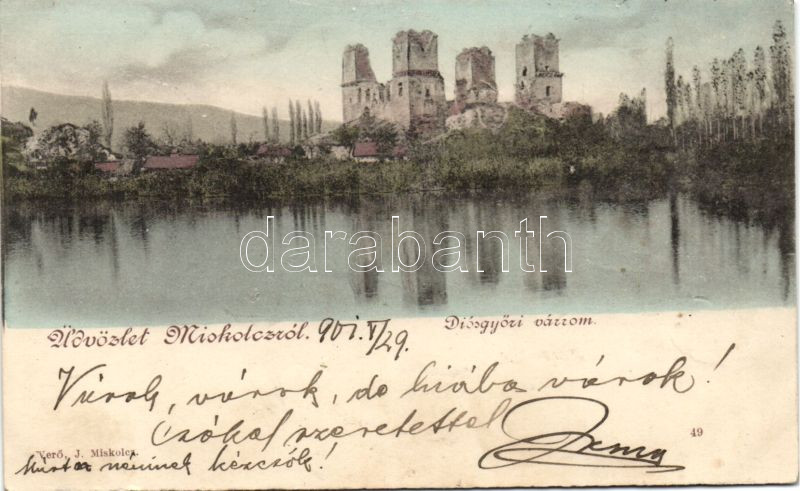 darabanth
Üdvözlet Miskolczról. 901. V/29.
Diósgyőri várrom.
Várok, várok, de hiába várok!
Csókol szeretettel
49
Verő, J. Miskolcz.
néninek kézcsók!